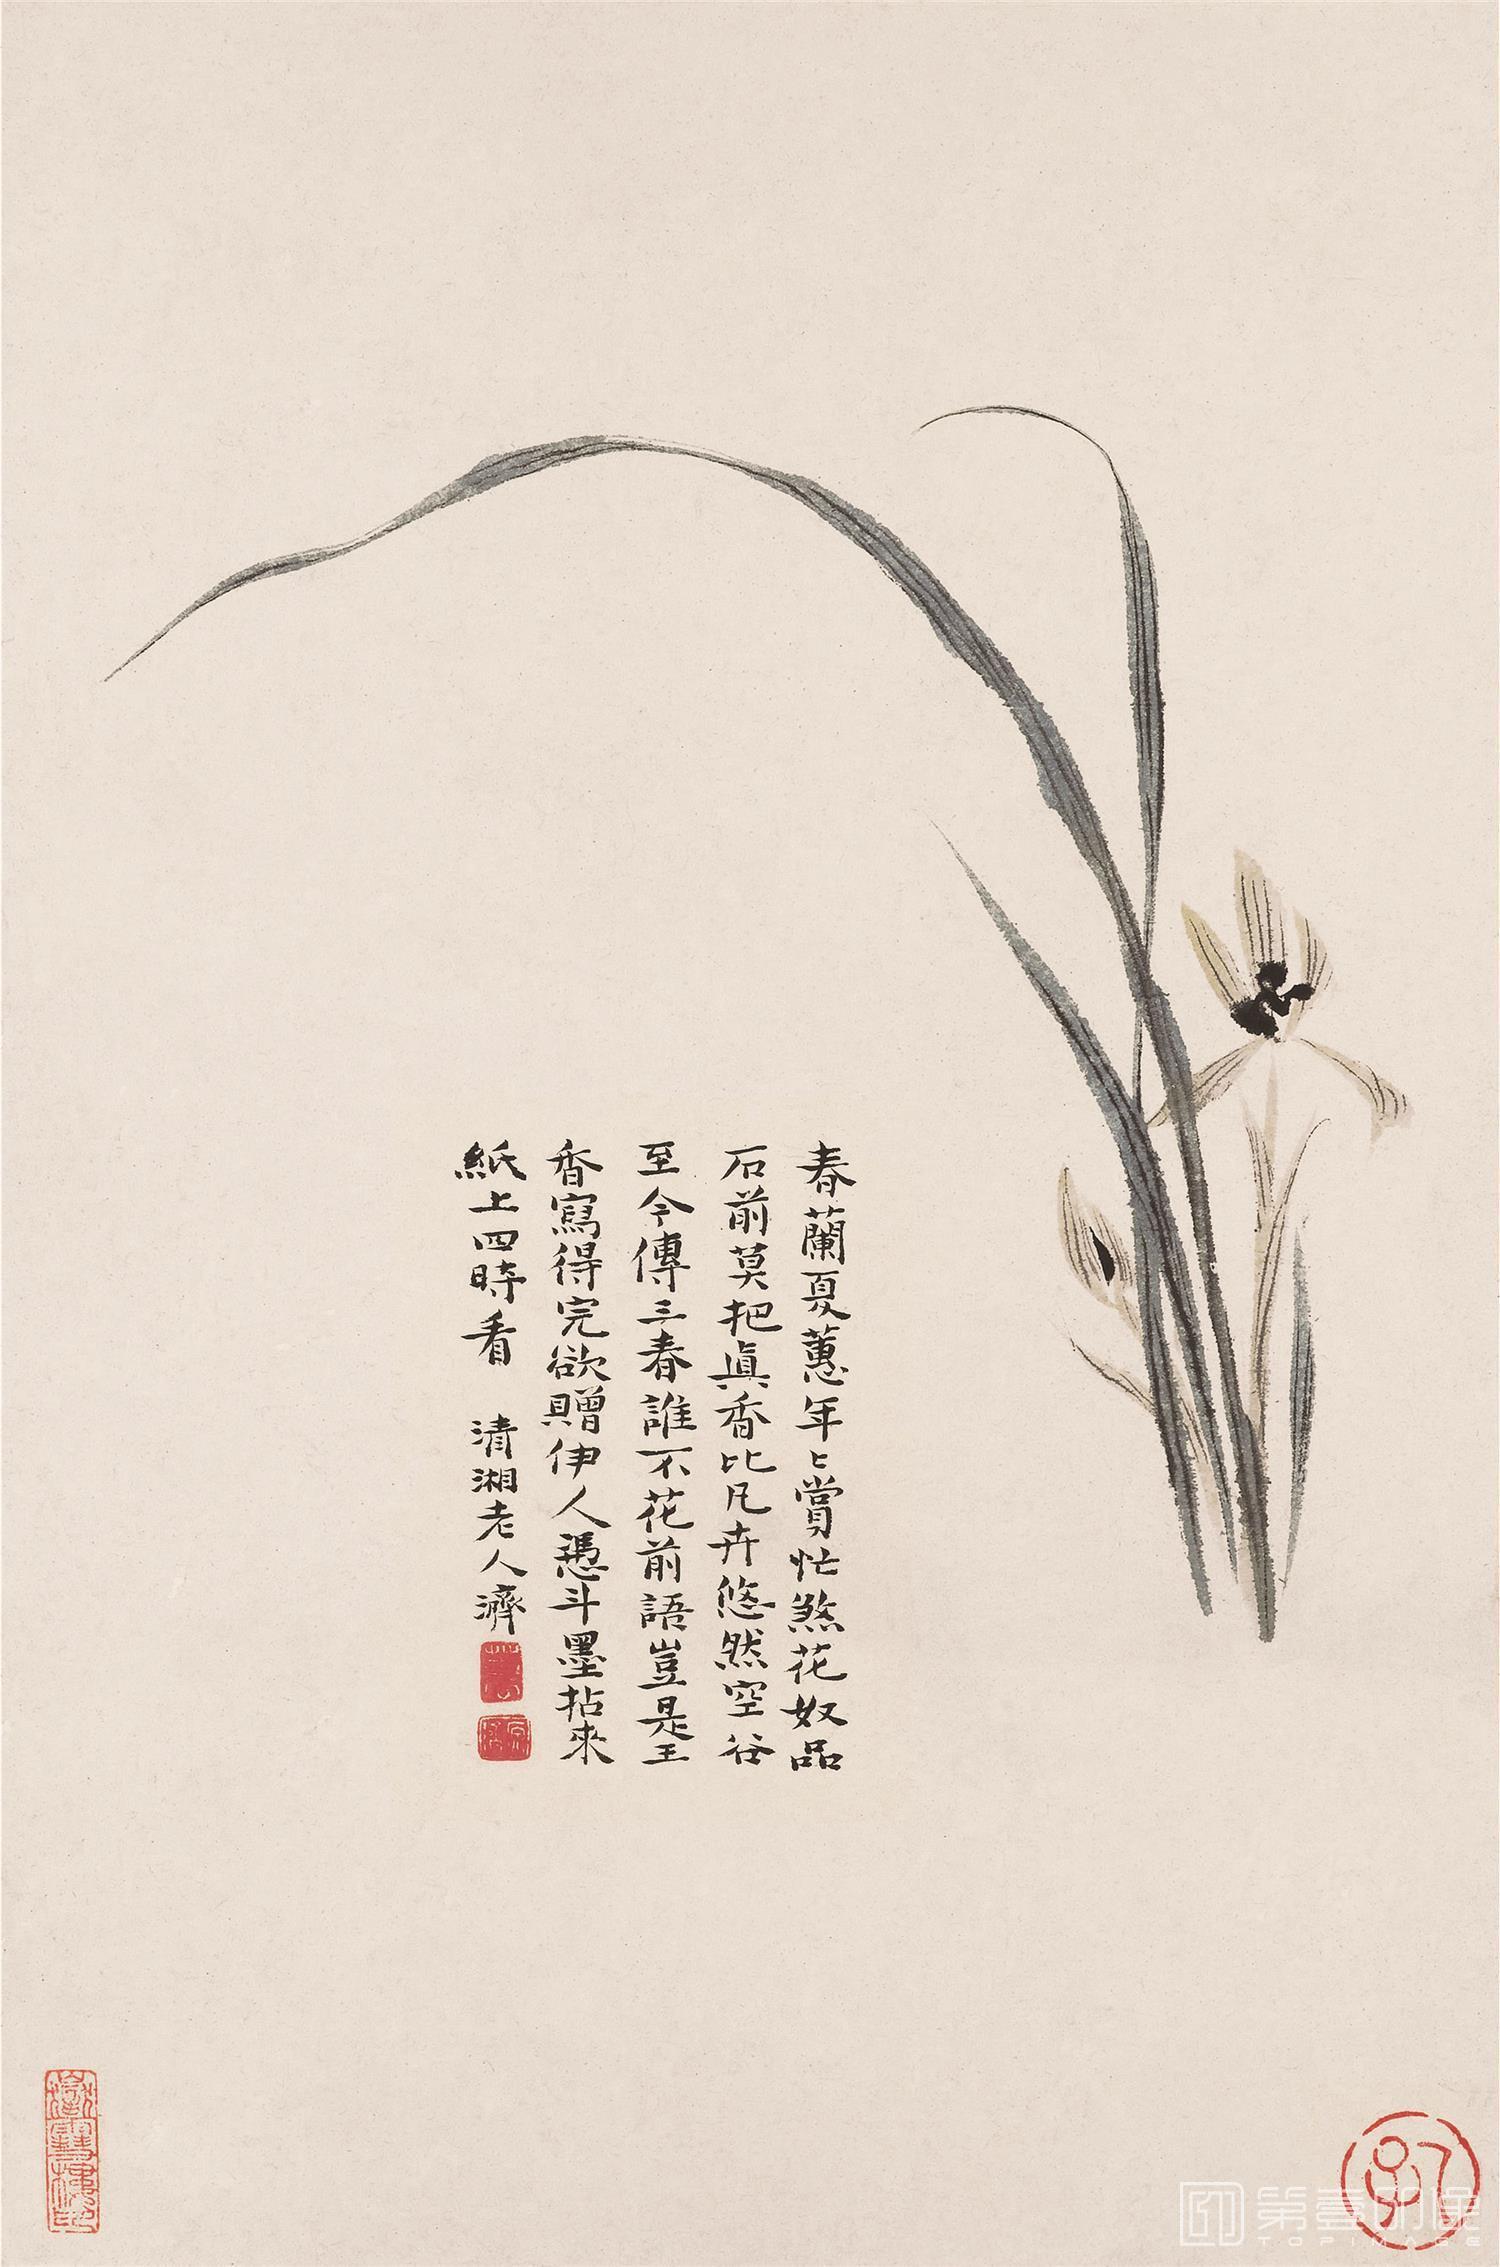 春蘭夏蕙年〻賞忙煞花奴品
石前莫把眞香比凡卉悠然空谷
至今傳三春誰不花前語豈是王
香寫得完欲贈伊人憑斗墨拈來
紙上四時看 清湘老人濟
第壹印像
TOPIMAGE